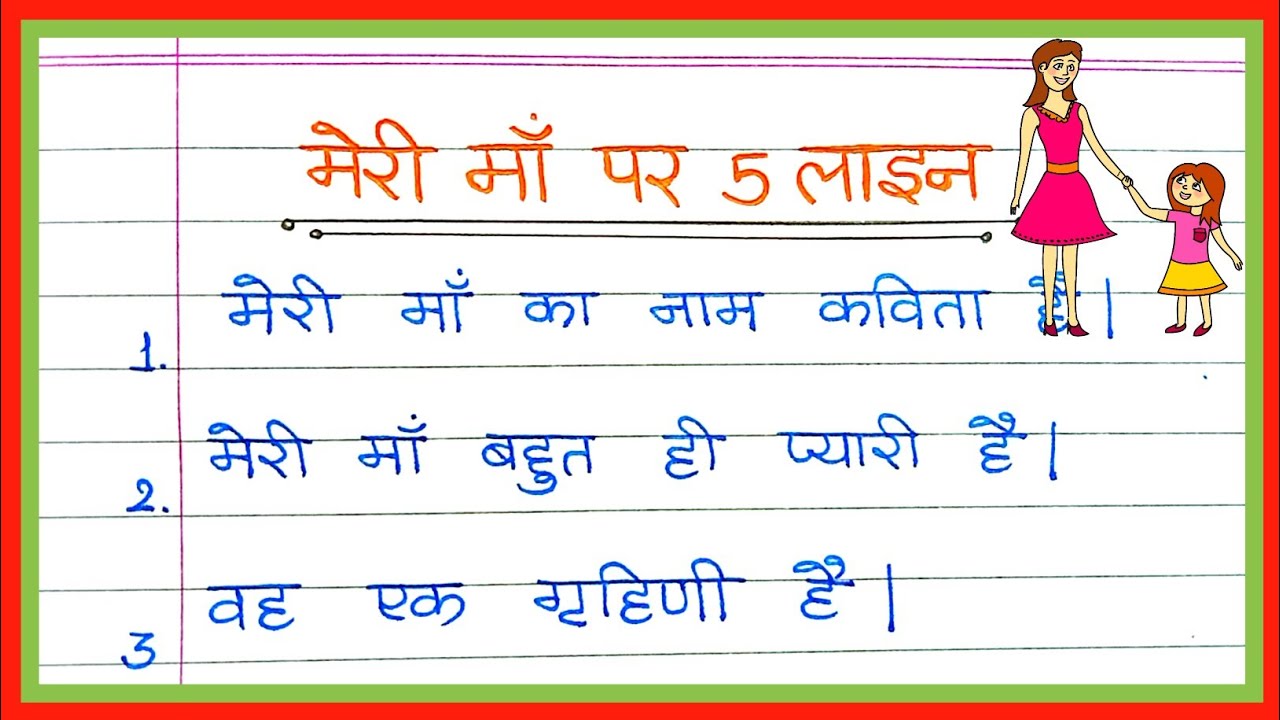 मेरी माँ पर 5 लाइन
1. मेरी माँ का नाम कविता है।
2. मेरी माँ बहुत ही प्यारी है।
3 वह एक गृहिणी है।